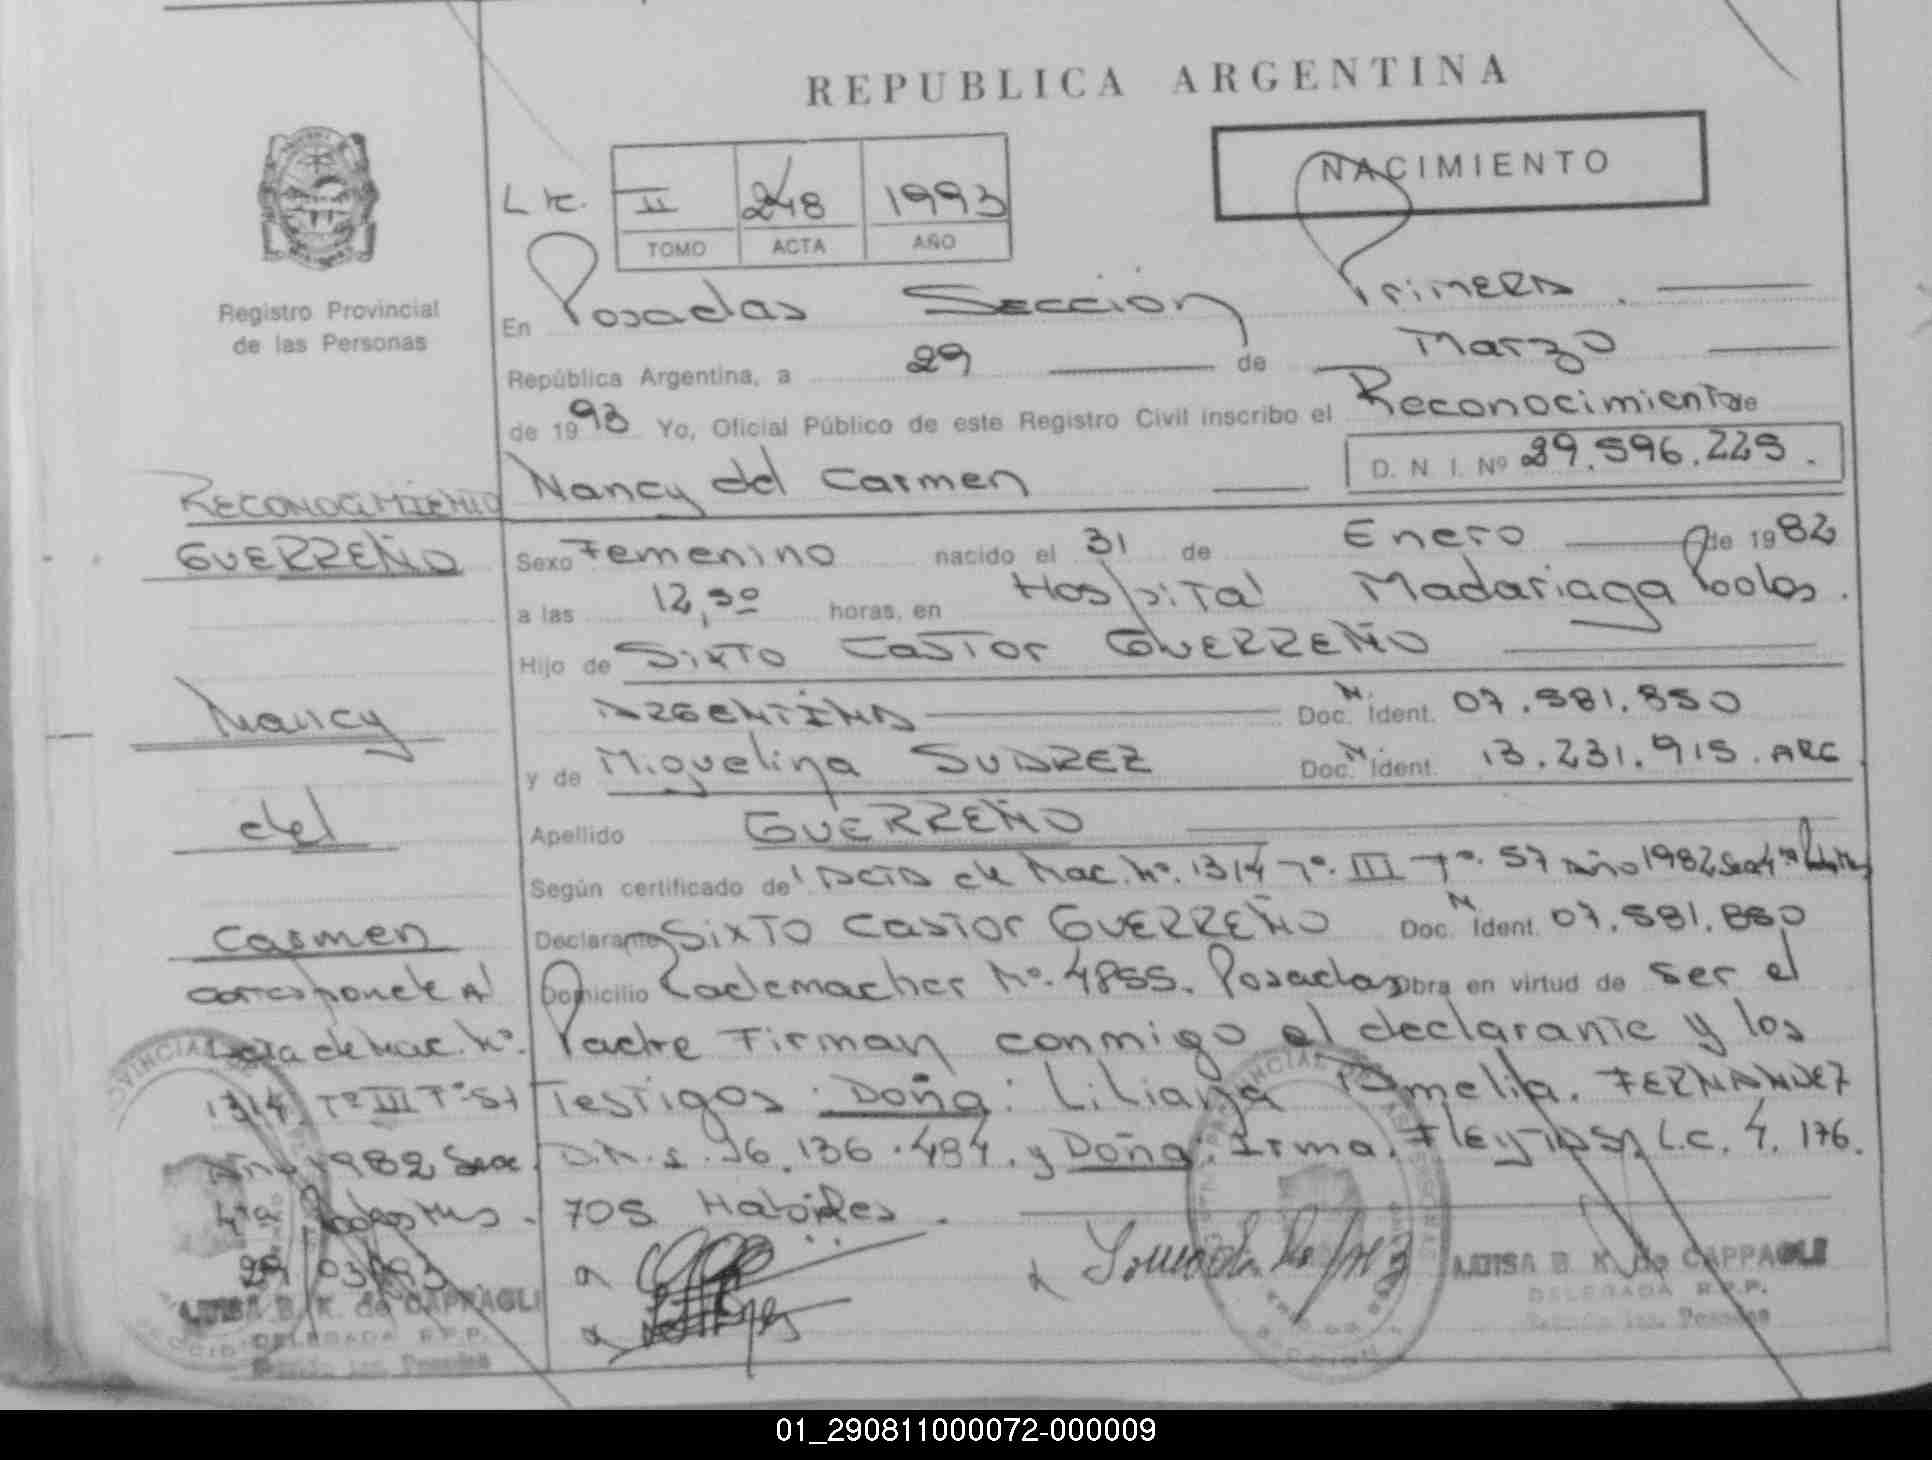 REPUBLICA ARGENTINA
NACIMIENTO
II 248 1993
TOMO ACTA AÑO
Registro Provincial
de las Personas
En Posadas Sección Primera.
República Argentina, a 29 de Marzo
de 1993 Yo, Oficial Público de este Registro Civil inscribo el Reconocimiento de
Nancy del Carmen D. N. I. Nº 29.596.225.
Sexo Femenino nacido el 31 de Enero de 1982
a las 12,30 horas, en Hospital Madariaga
Hijo de Sixto Castor GUERREÑO
ARGENTINA Doc. N. Ident.
y de Miguelina SUAREZ Doc. N. Ident. 13.231.915. ARG
Apellido GUERREÑO
Según certificado de Acta de Nac. Nº. 1314 Tº. III Fº. 57 Año 1982 Secc 4ª
Declarante Sixto Castor GUERREÑO Doc. N. Ident.
Domicilio Rademacher Nº. 4855. Posadas Obra en virtud de ser el
Padre Firman conmigo el declarante y los
Testigos: Doña: Liliana Amelia. FERNANDEZ
D.N.I. 16.136.484. y Doña: Irma. L.C. 4.176.
705 Habiles.
RECONOCIMIENTO
GUERREÑO
Nancy
del
Carmen
corresponde Al
Acta de Nac. Nº.
1314 Tº III Fº 57
Año 1982 Secc.
4ª
29/03/93
LUISA B. K. de CAPPAGLI
DELEGADA R.P.P.
LUISA B. K. de CAPPAGLI
DELEGADA R.P.P.
01_290811000072-000009